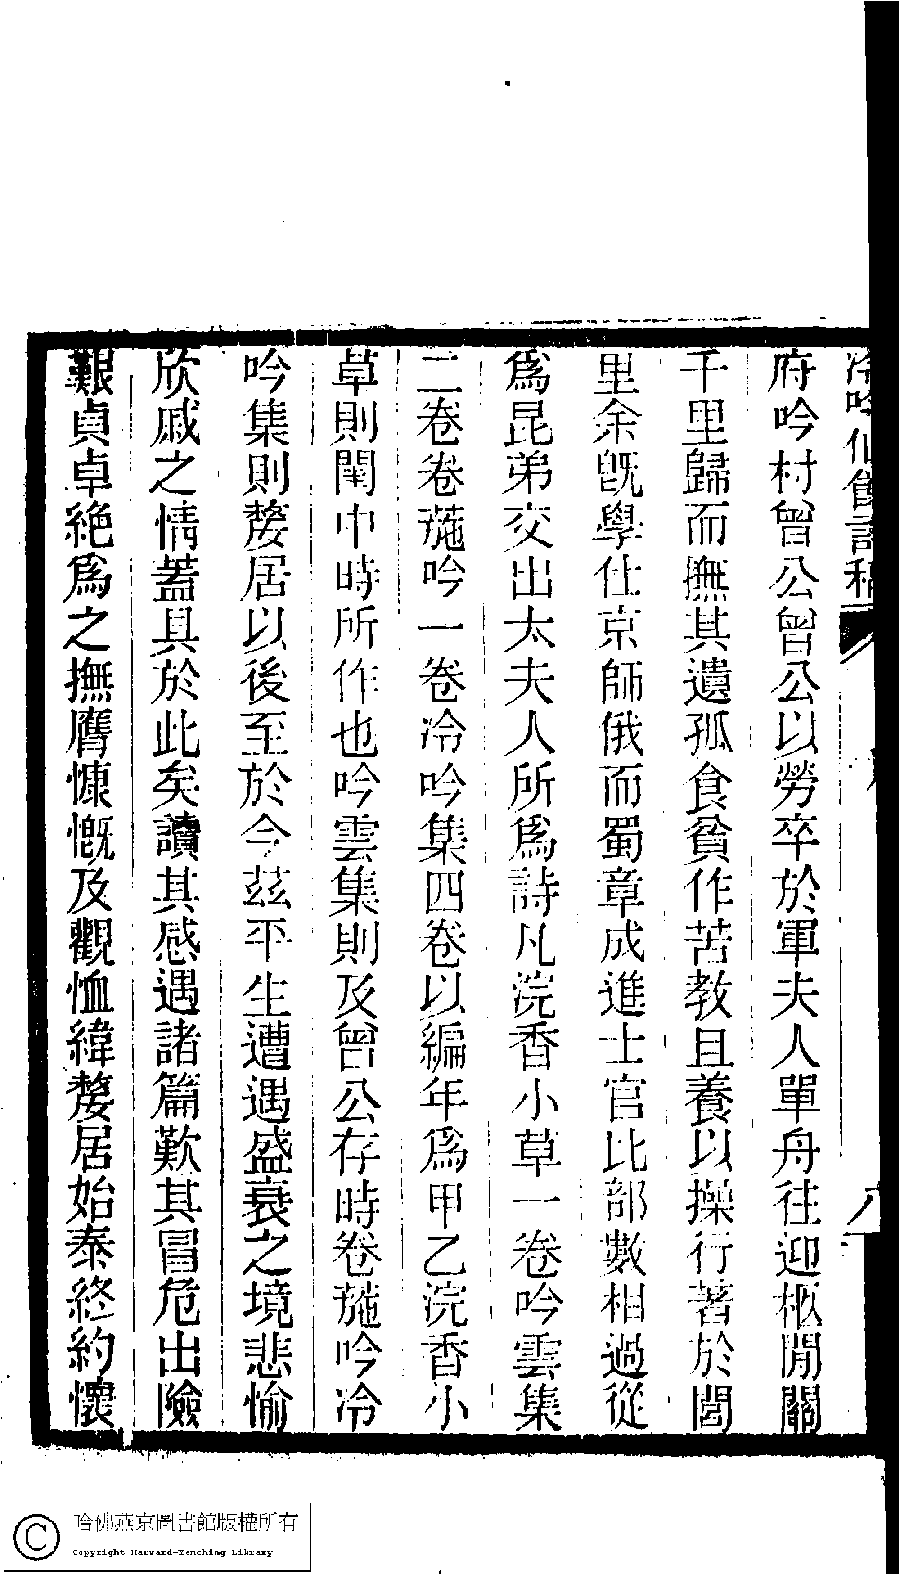 府吟村曾公曾公以勞卒於軍夫人單舟往迎柩閒關
千里歸而撫其遺孤食貧作苦教且養以操行著於閭
里余旣學仕京師俄而蜀章成進士官比部數相過從
爲昆弟交出太夫人所爲詩凡浣香小草一卷吟雲集
二卷卷葹吟一卷冷吟集四卷以編年爲甲乙浣香小
草則閨中時所作也吟雲集則及曾公存時卷葹吟冷
吟集則嫠居以後至於今茲平生遭遇盛衰之境悲愉
欣戚之情蓋具於此矣讀其感遇諸篇歎其冒危出險
艱貞卓絶爲之撫膺慷慨及觀恤緯嫠居始泰終約懷
冷吟仙館詩稿
八
哈佛燕京圖書館版權所有
Copyright Harvard-Yenching Library